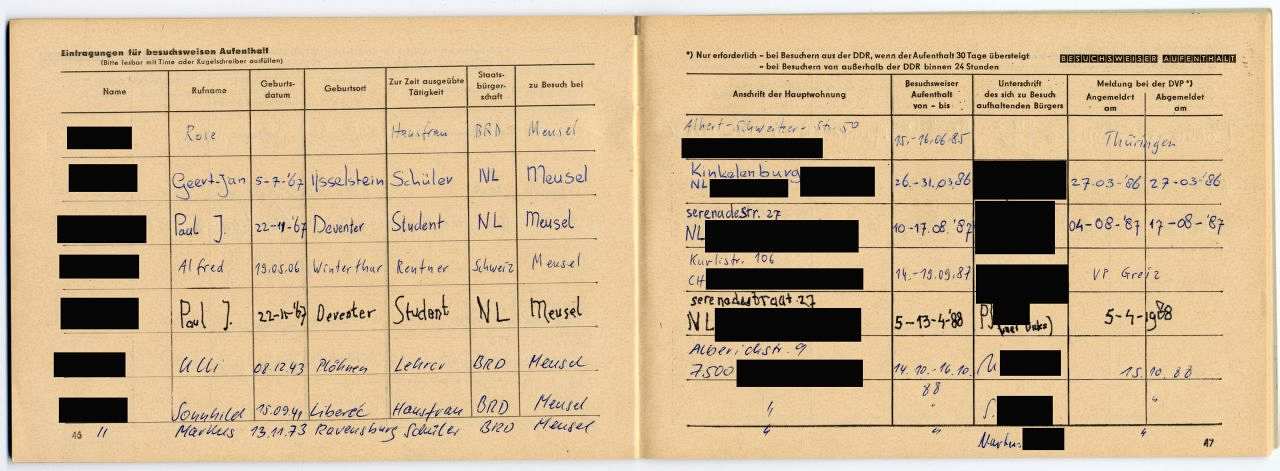 Eintragungen für besuchsweisen Aufenthalt
(Bitte lesbar mit Tinte oder Kugelschreiber ausfüllen)
Name Rufname Geburts- datum Geburtsort Zur Zeit ausgeübte Tätigkeit Staats- bürger- schaft zu Besuch bei
Rose Hausfrau BRD Meusel
Geert-Jan 5-7-'67 IJsselstein Schüler NL Meusel
Paul J. 22-11-'67 Deventer Student NL Meusel
Alfred 19.05.06 Winterthur Rentner Schweiz Meusel
Paul J. 22-11-'67 Deventer Student NL Meusel
Ulli 08.12.43 Lehrer BRD Meusel
Sonnhild 15.09.41 Liberec Hausfrau BRD Meusel
46 " Markus 13.11.73 Ravensburg Schüler BRD Meusel
*) Nur erforderlich – bei Besuchern aus der DDR, wenn der Aufenthalt 30 Tage übersteigt
– bei Besuchern von außerhalb der DDR binnen 24 Stunden
BESUCHSWEISER AUFENTHALT
Anschrift der Hauptwohnung Besuchsweiser Aufenthalt von – bis Unterschrift des sich zu Besuch aufhaltenden Bürgers Meldung bei der DVP *) Angemeldet am Abgemeldet am
Albert-Schweitzer-Str. 50
15.-16.06.85 Thüringen
Kinkelenburg
NL 26.-31.03.86 27-03-'86 27-03-'86
serenadestr. 27
NL 10-17.08.'87 04-08-'87 17-08-'87
Kurlistr. 106
CH 14.-19.09.87 VP Greiz
serenadestraat 27
NL 5-13-4-'88 PJ 5-4-1988
Alberichstr. 9
7500 14.10.-16.10. 88 15.10.88
" " S. "
" " Markus "
47